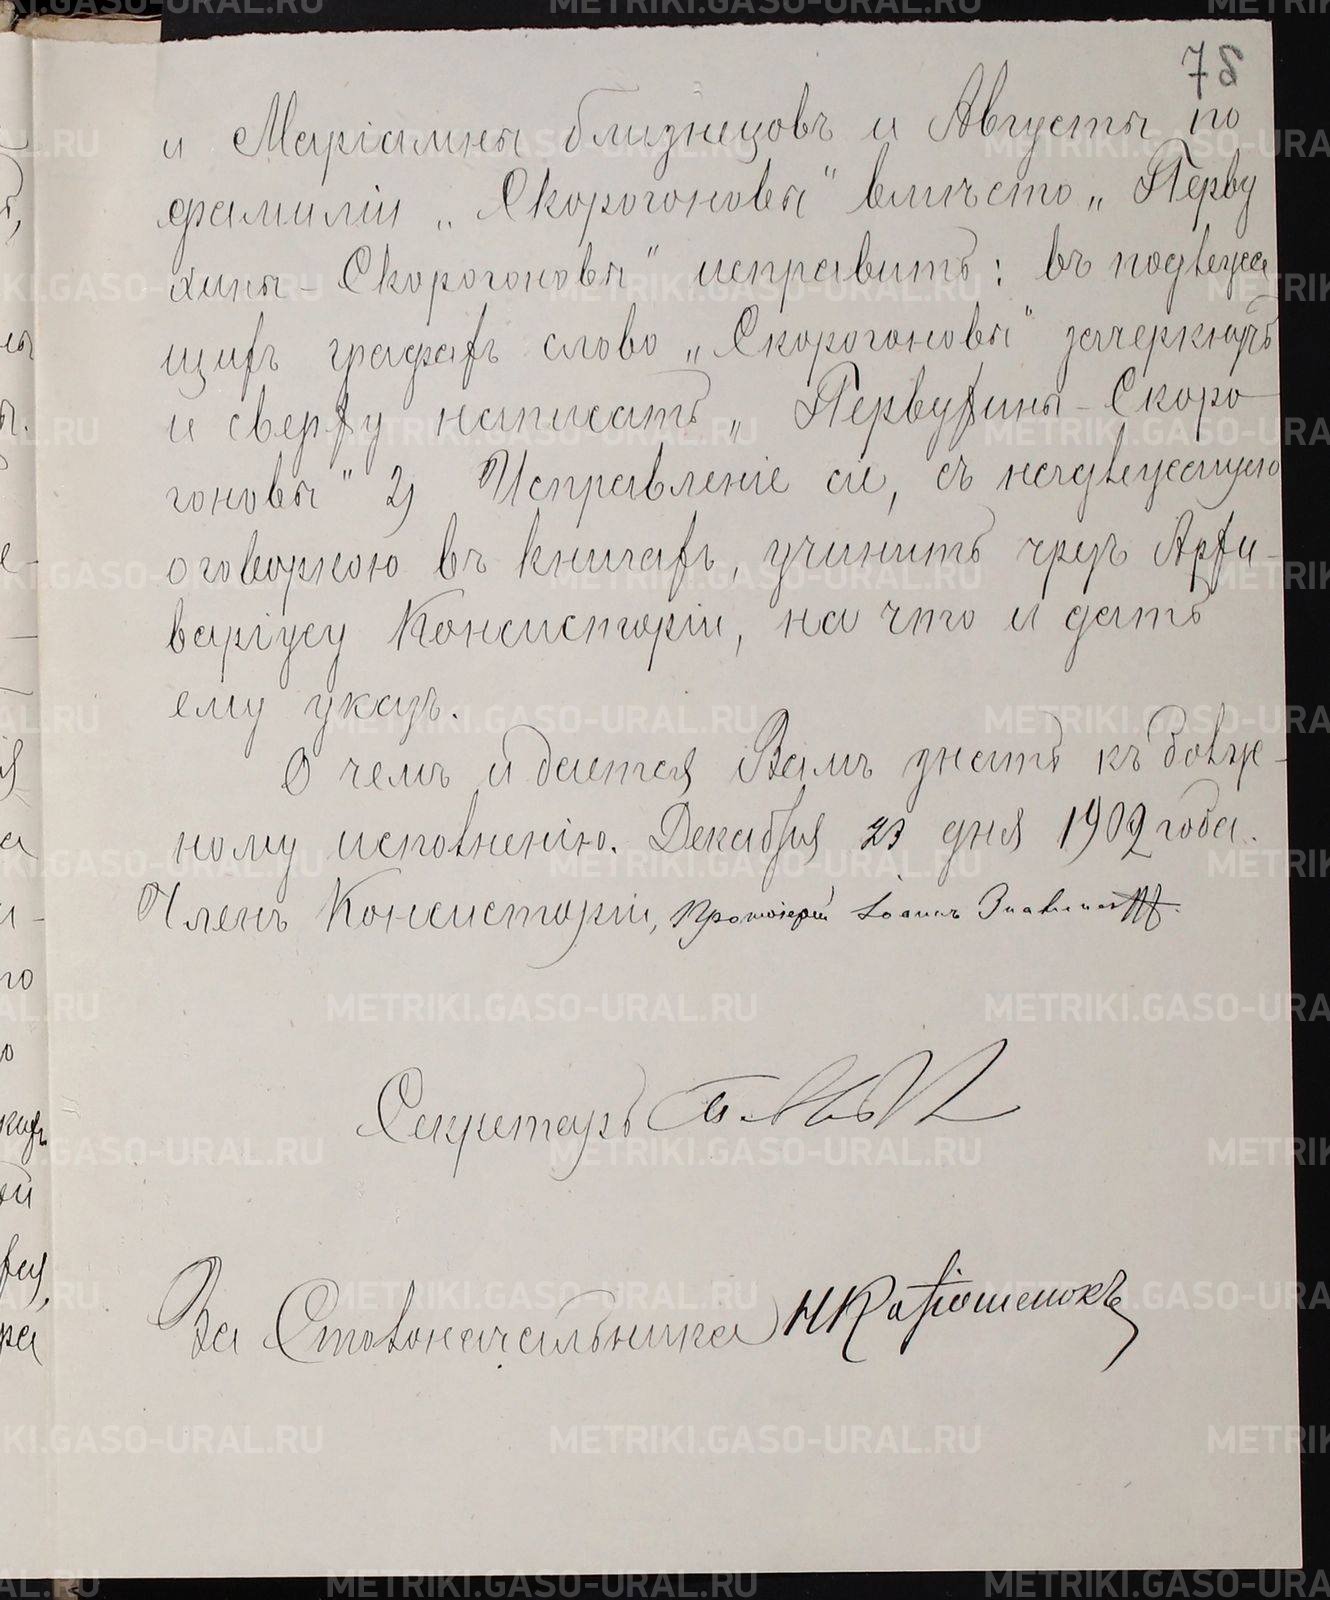 78
и Маріамны близнецовъ и Августы по
фамиліи „Скорогоновы" вмѣсто „Перву
хины-Скорогоновы" исправить: въ подлежа
щихъ графахъ слово „Скорогоновы" зачеркнуть
и сверху написать „Первухины-Скоро
гоновы" 2) Исправленіе сіе, съ надлежащею
оговоркою въ книгахъ, учинить чрезъ Архи-
варіуса Консисторіи, на что и дать
ему указъ.
О чемъ и дается Вамъ знать къ долж-
ному исполненію. Декабря 23 дня 1902 года.
Членъ Консисторіи, Протоіерей Іоаннъ
Секретарь
За Столоначальника Н